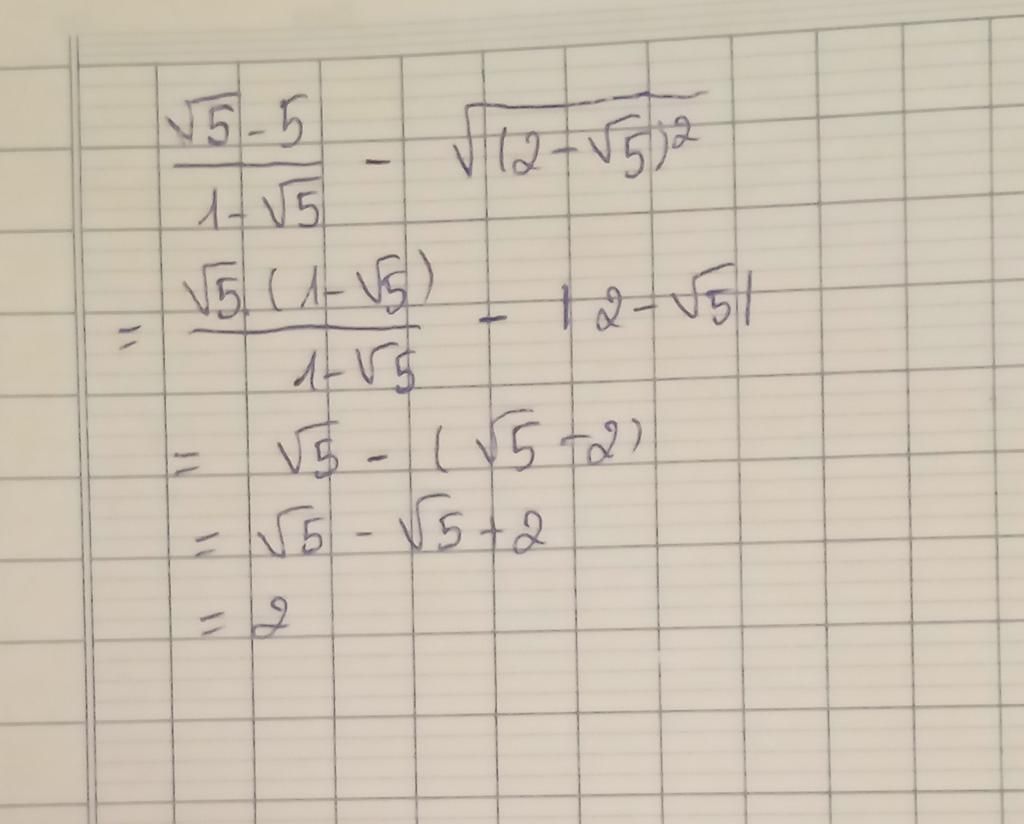 \frac{\sqrt{5} - 5}{1 - \sqrt{5}} - \sqrt{(2 - \sqrt{5})^2}
= \frac{\sqrt{5}.(1 - \sqrt{5})}{1 - \sqrt{5}} - |2 - \sqrt{5}|
= \sqrt{5} - (\sqrt{5} + 2)
= \sqrt{5} - \sqrt{5} + 2
= 2